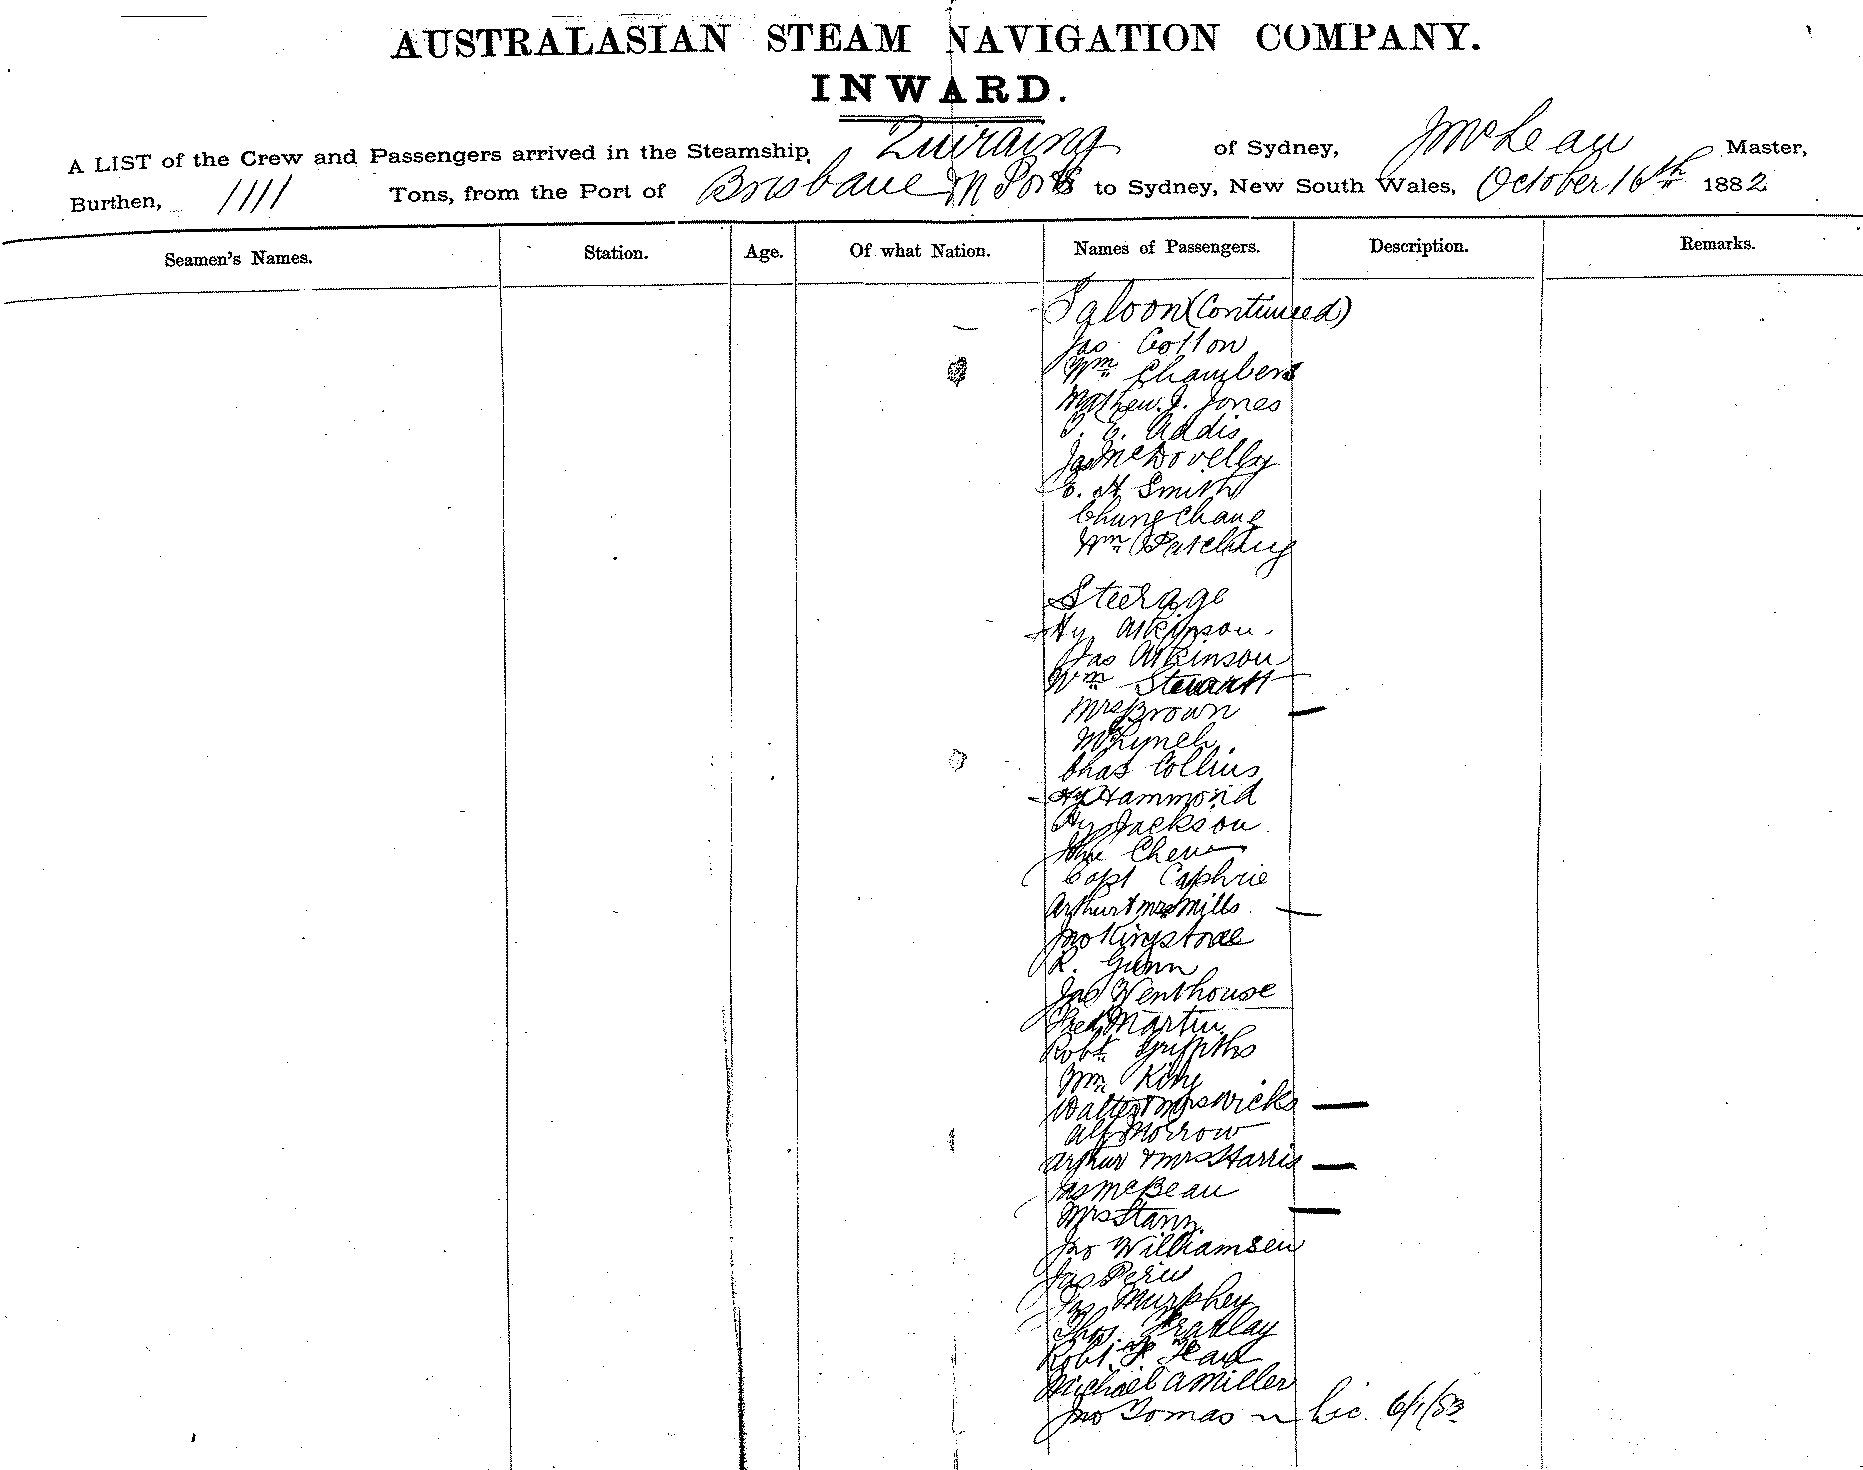 AUSTRALASIAN STEAM NAVIGATION COMPANY.
INWARD.
A LIST of the Crew and Passengers arrived in the Steamship, Quiraing of Sydney, J McLean Master,
Burthen, 1111 Tons, from the Port of Brisbane & N Ports to Sydney, New South Wales, October 16th 1882
Seamen's Names. Station. Age. Of what Nation. Names of Passengers. Description. Remarks.
Saloon (Continued)
Jas Cotton
Wm Chambers
Mathew J. Jones
T. E. Addis
Jas McDovelly
E. H Smith
Chung Chang
Wm Patching
Steerage
Hy Atkinson.
Jas Atkinson
Wm Stewart
Mrs Brown
M Lynch
Chas Collins
Hy Hammond
Hy Jackson
Capt Caphrie
Arthur & Mrs Mills
Jno Kingstree
R. Gunn
Jas Wenthouse
Fred Martin
Robt Griffiths
Wm King
Walter & Mrs Wicks
Alf Morrow
Arthur & Mrs Harris
Jas McBean
Mrs Stann
Jno Williamsen
Jas
Jas Murphey
Thos.
Robt
Michael A Miller
Jno Tomas Lic. 6/1/83